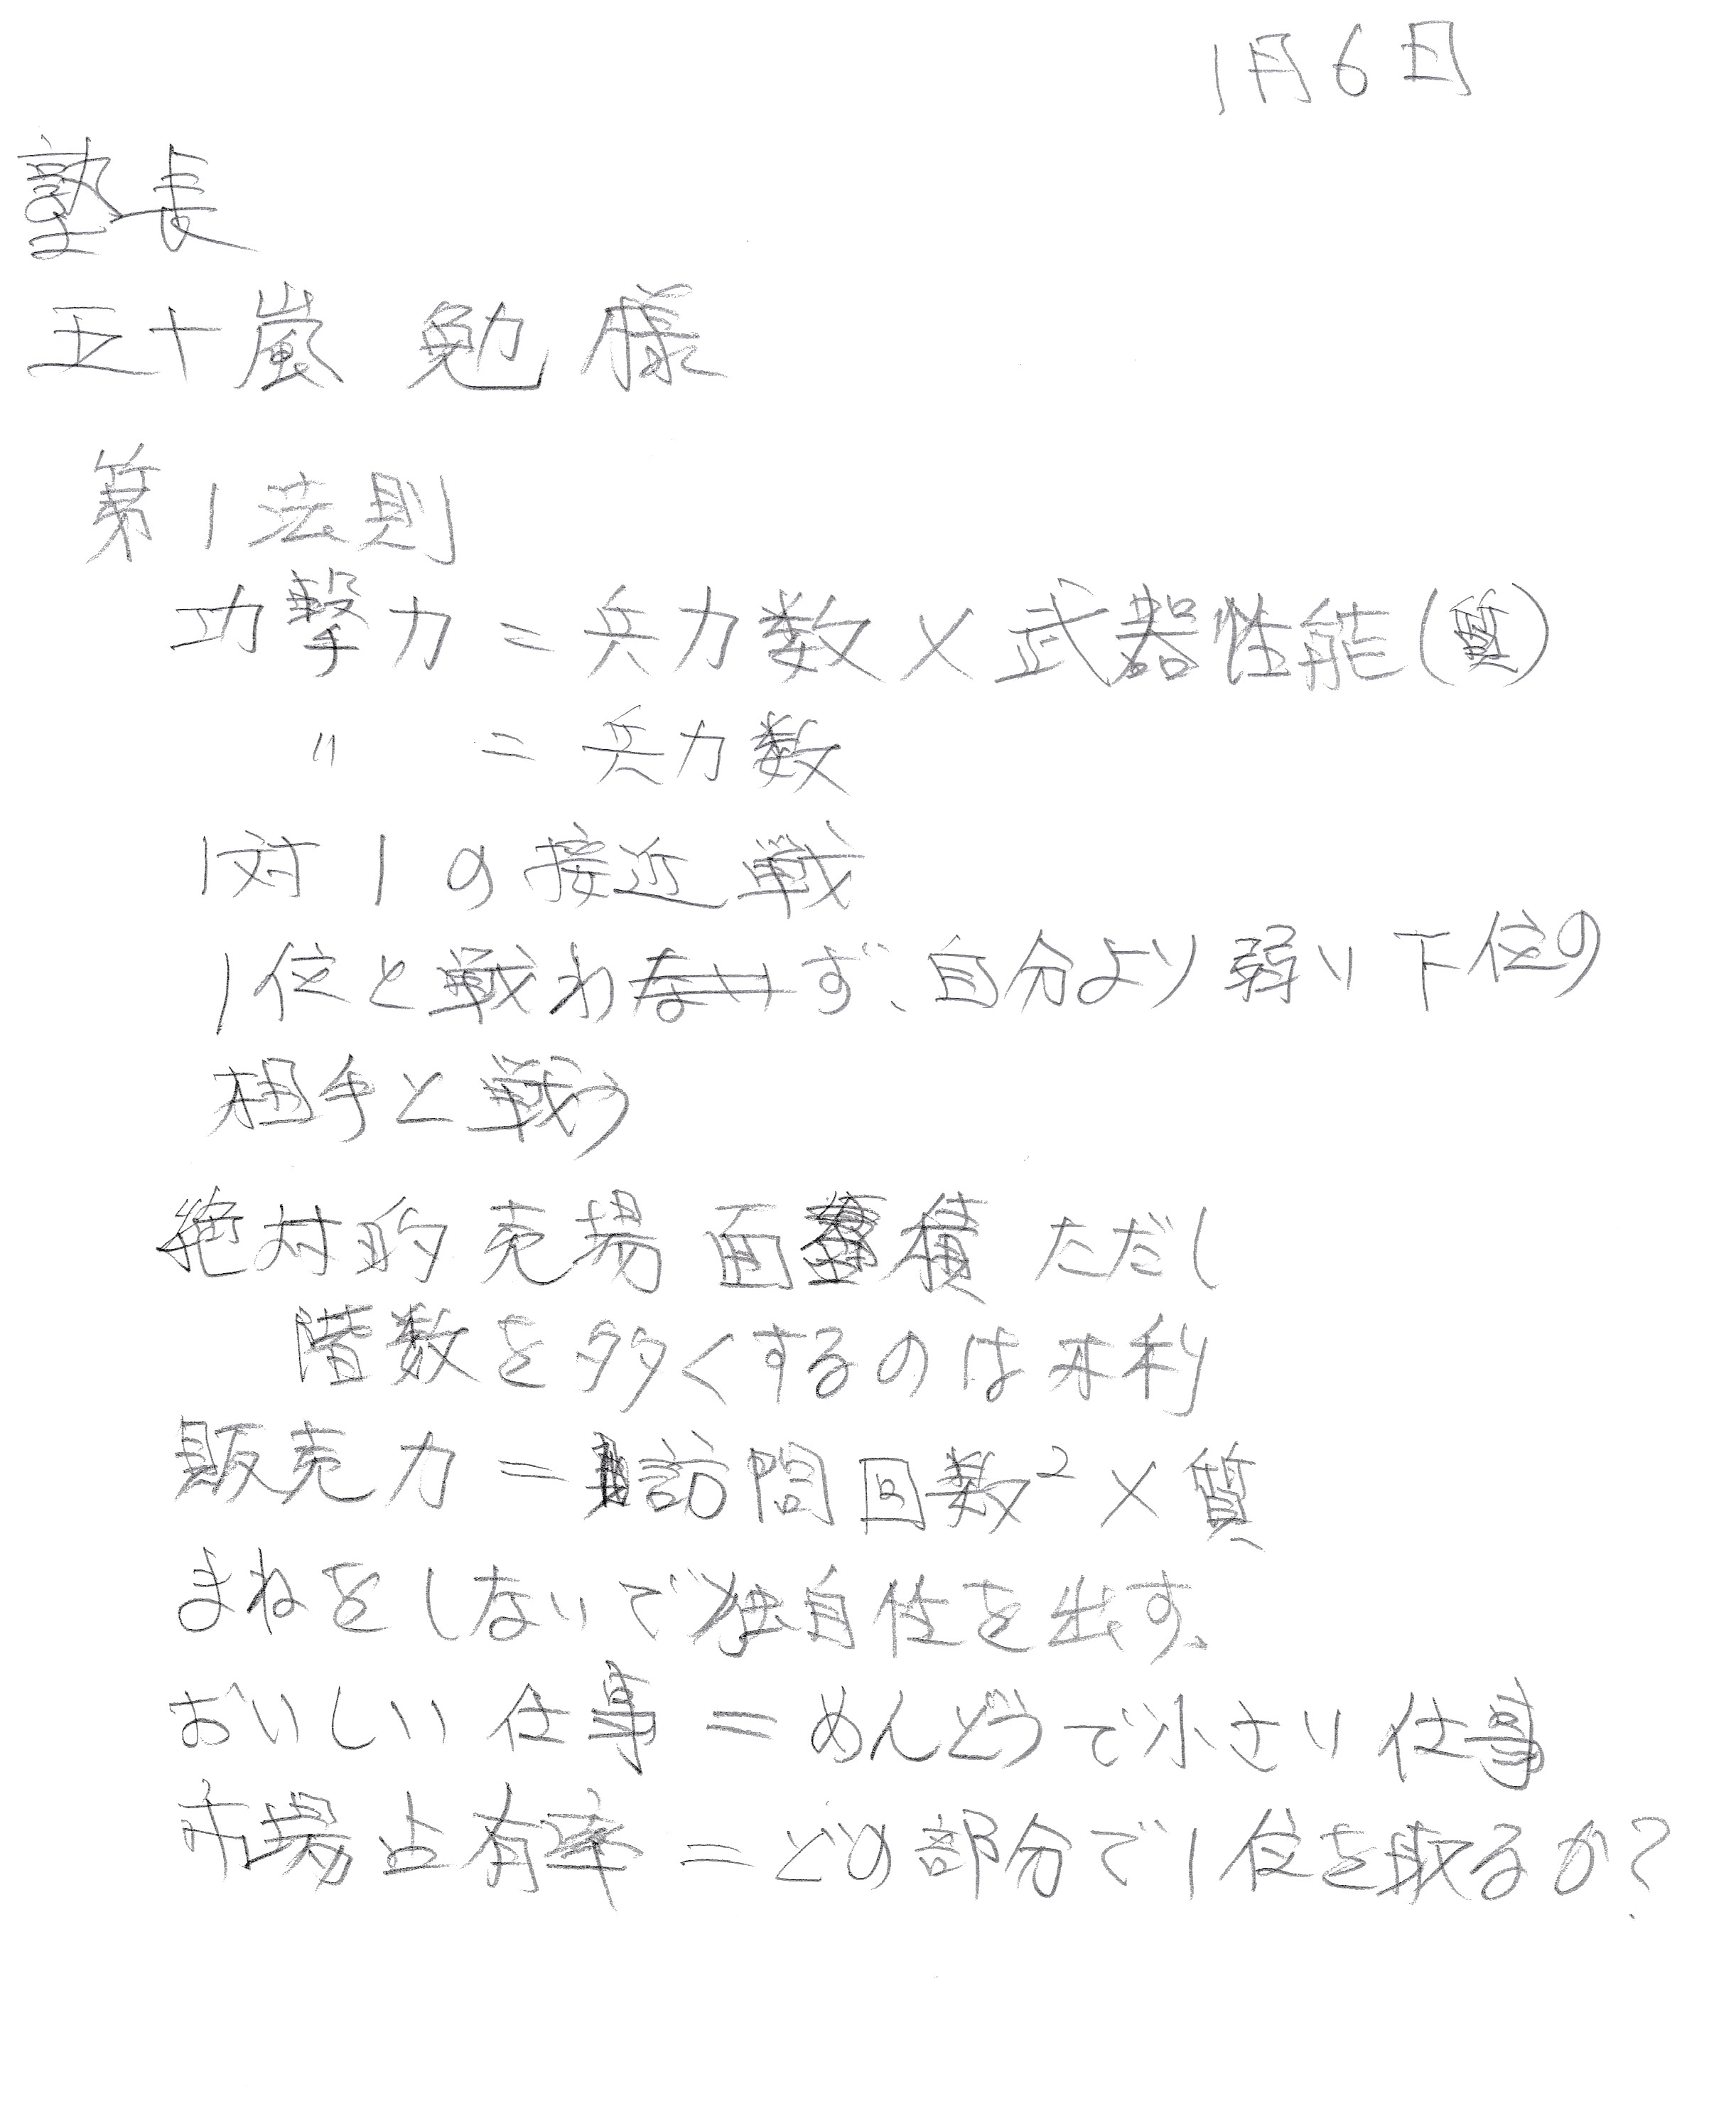 1月6日
塾長
五十嵐 勉 様
第1法則
功撃力 = 兵力数 × 武器性能(質)
〃 = 兵力数
1対1の接近戦
1位と戦わず、自分より弱い下位の
相手と戦う
絶対的売場面積 ただし
階数を多くするのは不利
販売力 = 訪問回数² × 質
まねをしないで独自性を出す、
おいしい仕事 = めんどうで小さい仕事
市場占有率 = どの部分で1位を取るか?